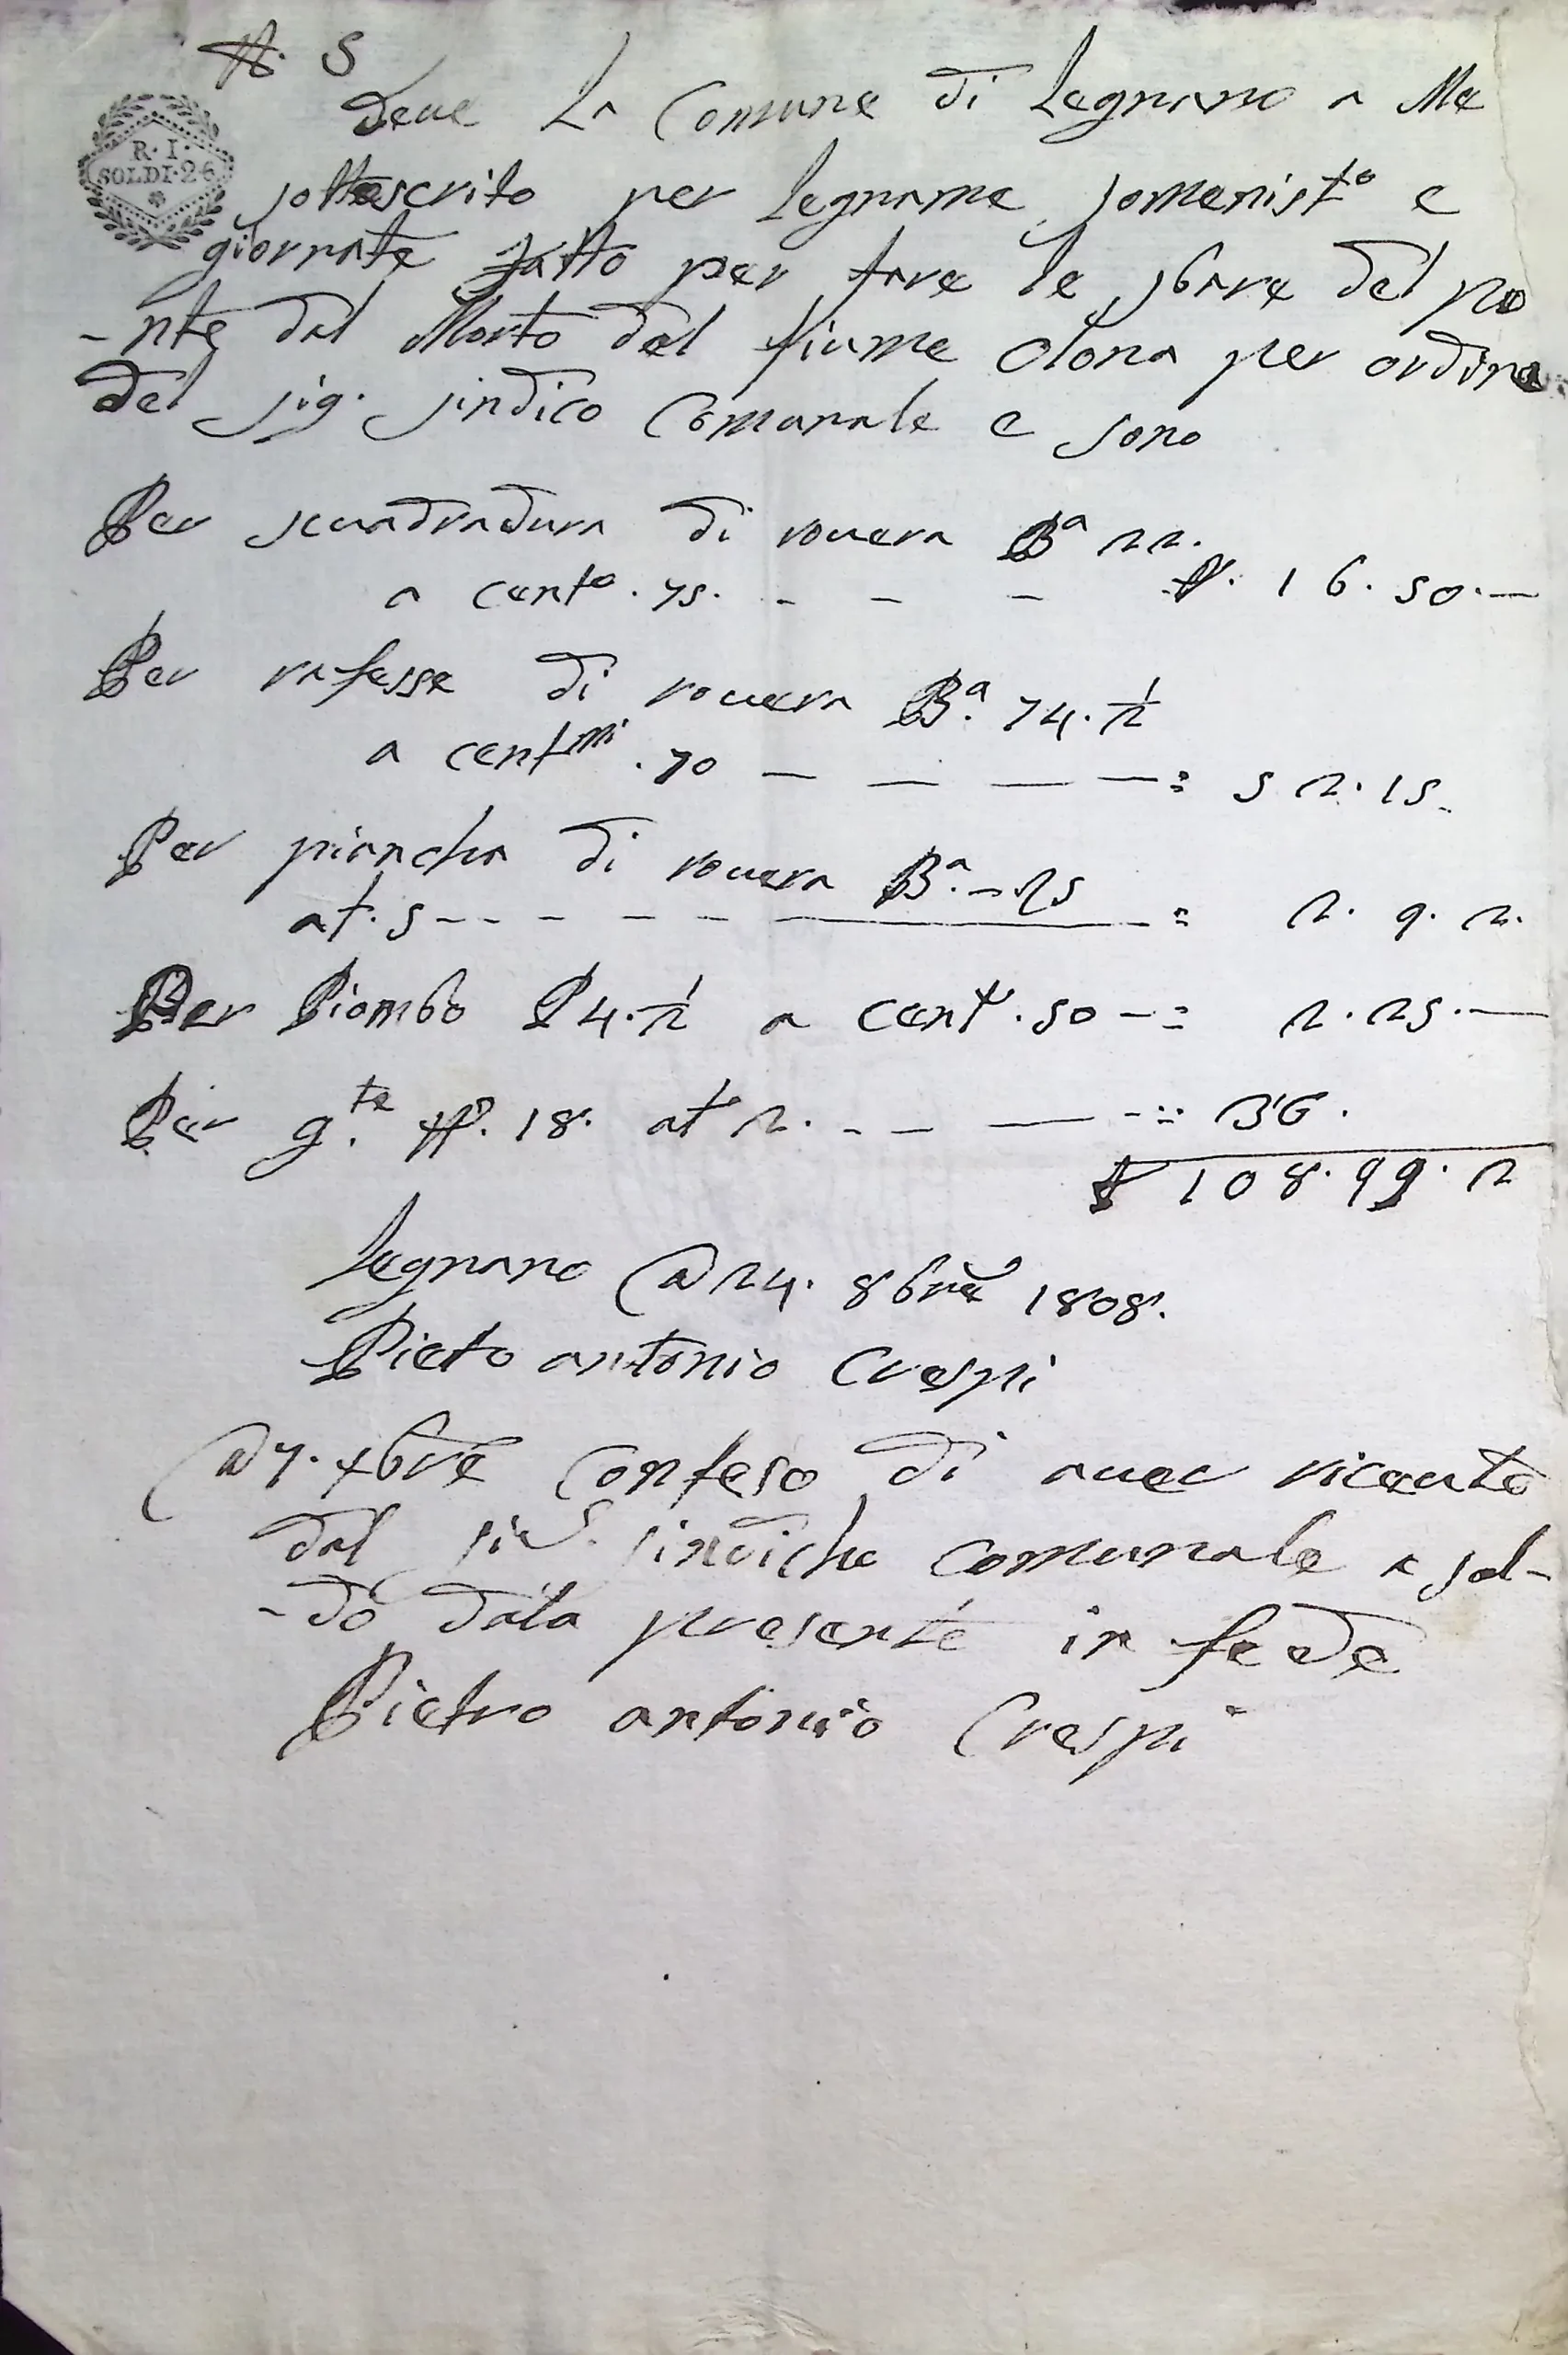 N. 5
R. I.
SOLDI. 26
Deue La Comune di Legnano a Me
sottoscrito per legname somenist.to e
giornate fatto per fare le sbare del po
-nte dal Morto del fiume Olona per ordine
del sig. sindico Comunale e sono
Per scuadradura di rouera B.a 22.
a cent.o 75. - - - £. 16. 50. —
Per rafesse di rouera B.a 74. 1/2
a cent.mi 70 — — — — : 52. 15.
Per piancha di rouera B.a - 25
at. 5 - - - - - — : 2. 9. 2.
Per Piombo P 4. 1/2 a cent. 50 - : 2. 25. —
Per g.te N. 18. at 2. - - — - : 36.
£ 108. 99. 2
Legnano a 24. 8bre 1808.
Pieto antonio Crespi
a 7. Xbre Confeso di auer riceuto
dal sindicho comunale a sal-
-do dala presente in fede
Pietro antonio Crespi